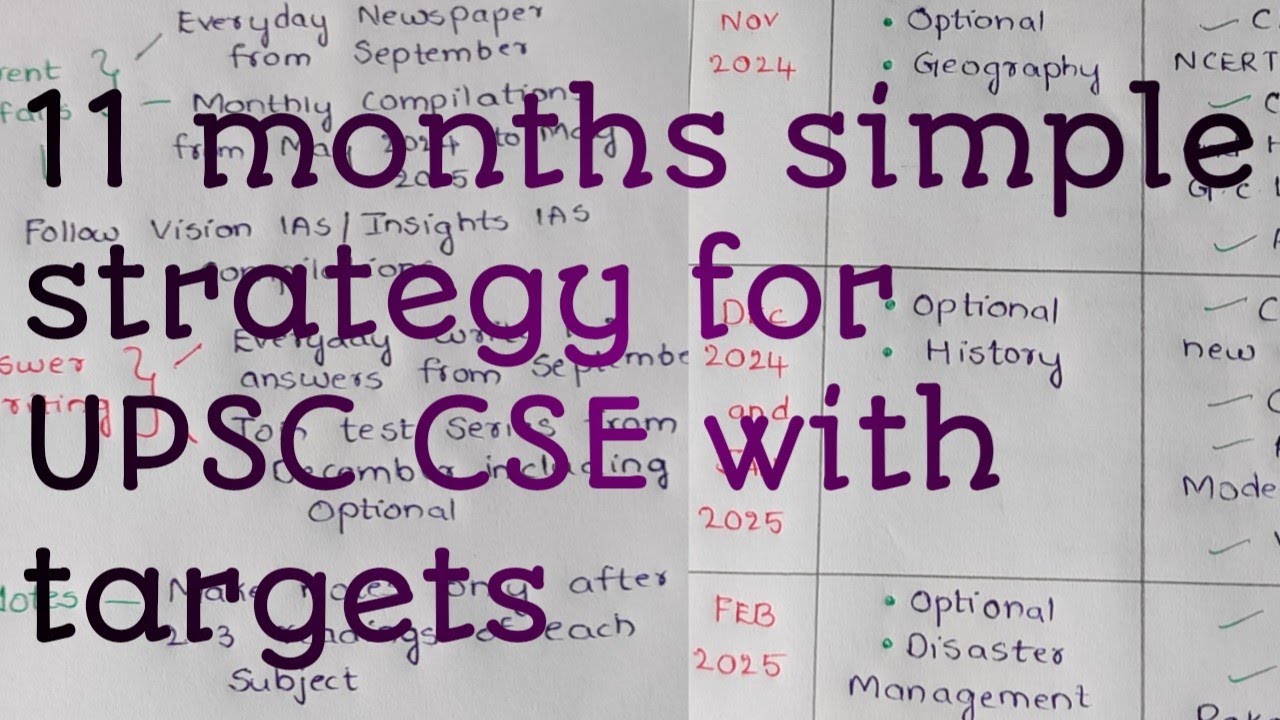 11 months simple
strategy for
UPSC CSE with
targets
Everyday Newspaper
from September
Monthly Compilations
from May 2024 to May
2025
Follow Vision IAS/Insights IAS
Everyday
answers from September
Join test series from
December including
Optional
Notes — Make notes only after
2-3 readings of each
Subject
Nov
2024
• Optional
• Geography
NCERT
Dec
2024
and
2025
• Optional
• History
new
Mode
FEB
2025
• Optional
• Disaster
Management